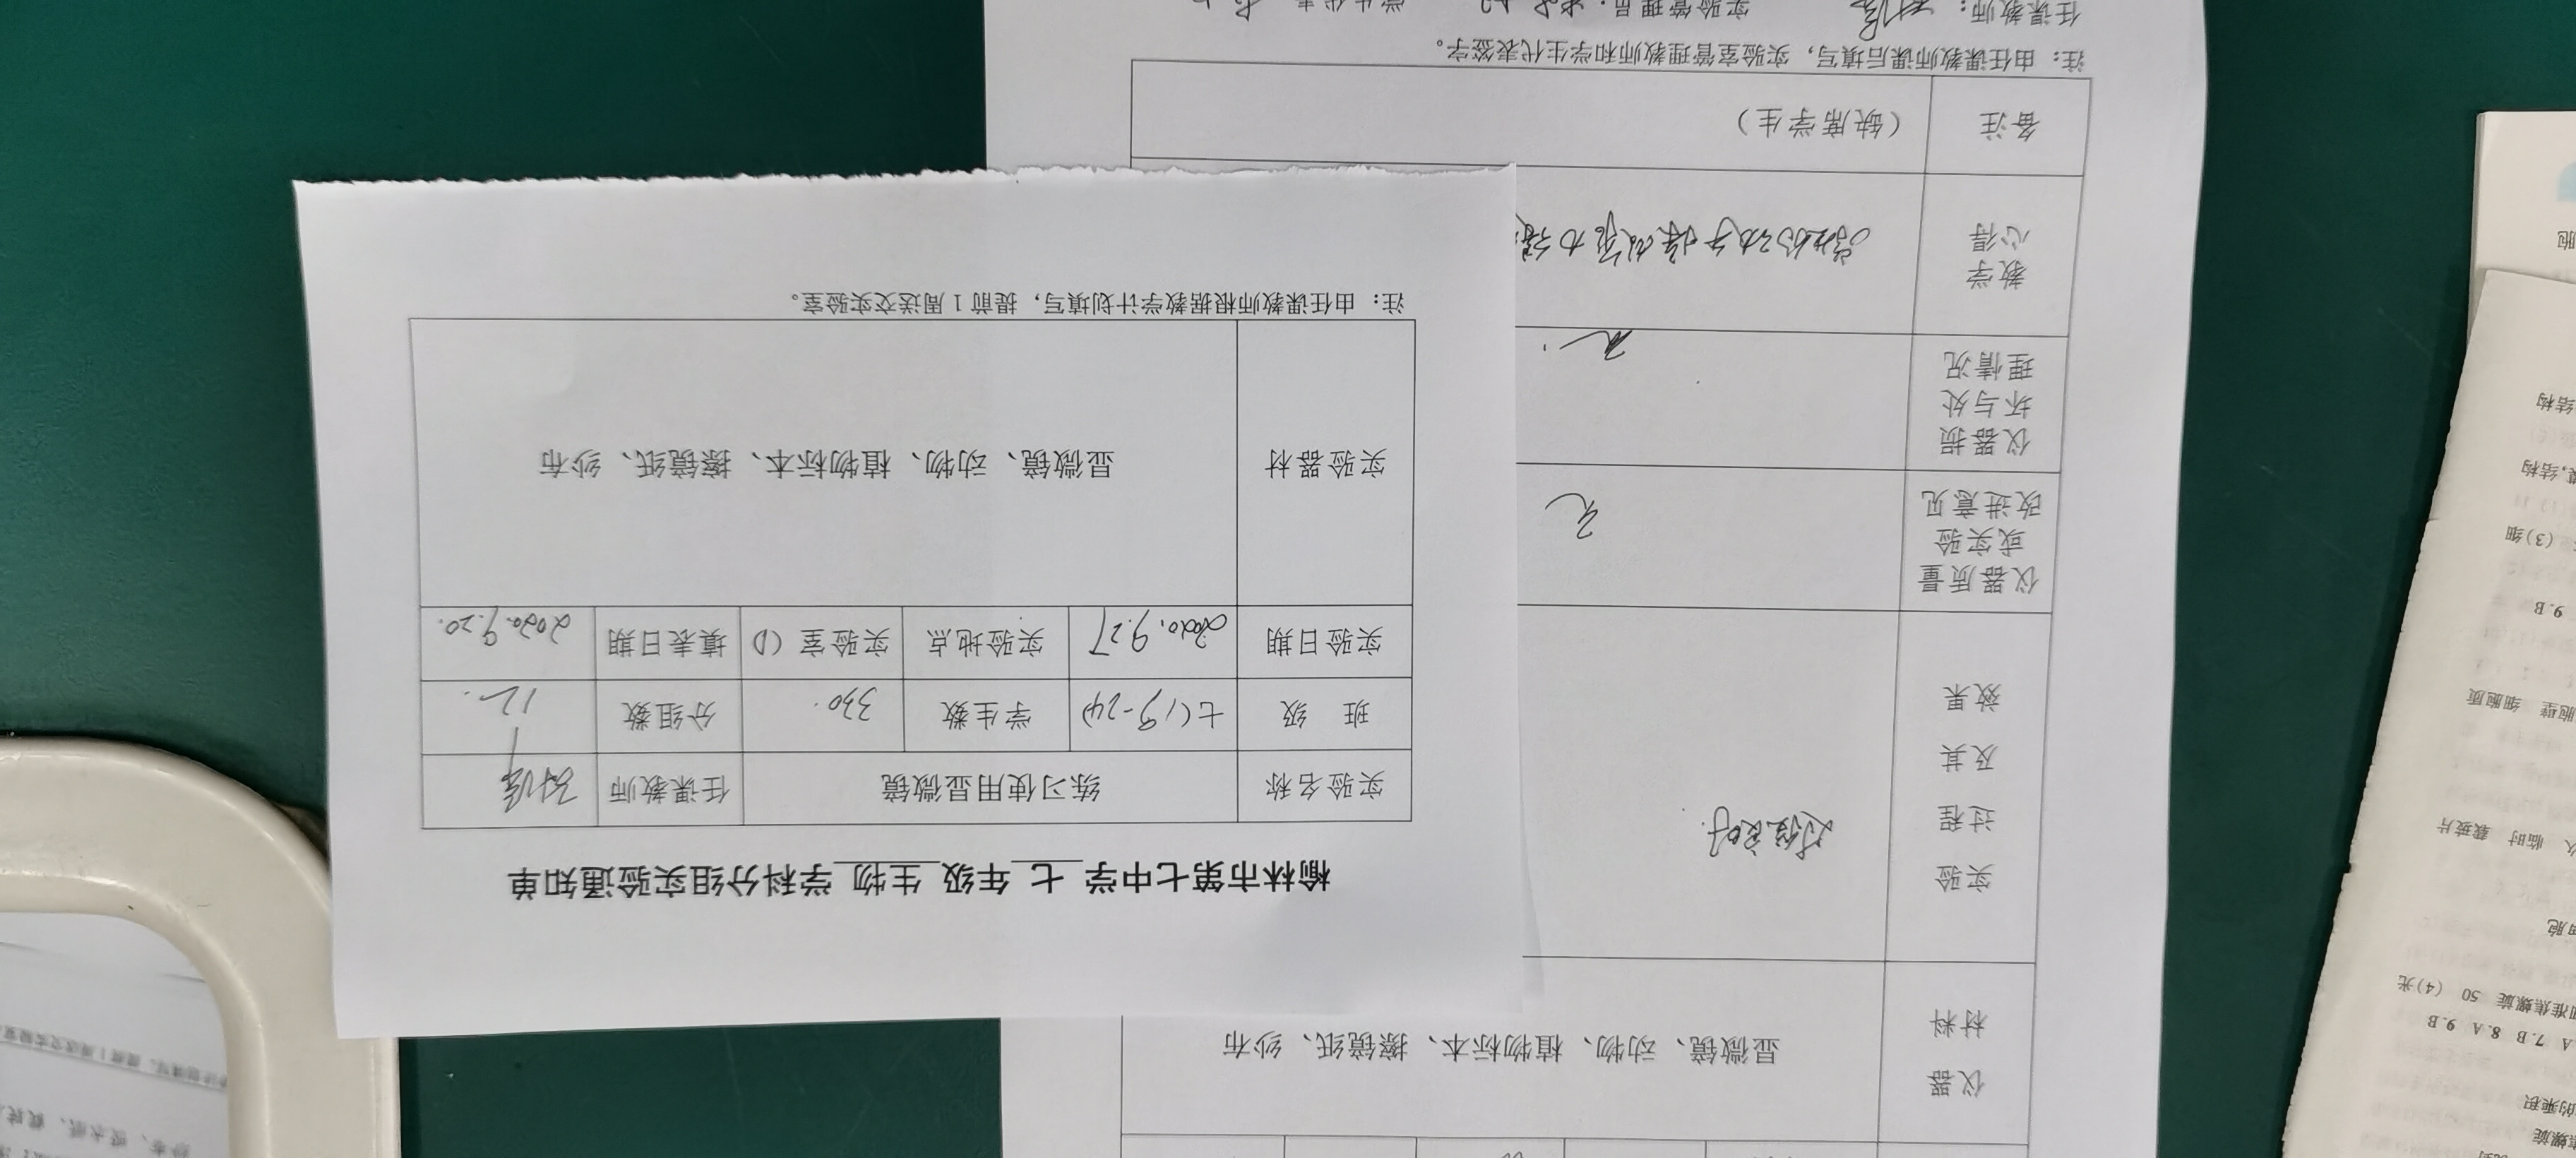 榆林市第七中学 七 年级 生物 学科分组实验通知单
实验名称 练习使用显微镜 任课教师
班 级 七(19-24) 学生数 330. 分组数 12.
实验日期 2020.9.27 实验地点 实验室(1) 填表日期 2020.9.20.
实验器材 显微镜、动物、植物标本、擦镜纸、纱布
注：由任课教师根据教学计划填写，提前1周送交实验室。
仪器
材料
显微镜、动物、植物标本、擦镜纸、纱布
实验
过程
及其
效果
过程良好.
仪器质量
或实验
改进意见
无
仪器损
坏与处
理情况
无.
教学
心得
备注
（缺席学生）
注：由任课教师课后填写，实验室管理教师和学生代表签字。
任课教师： 实验管理员： 学生代表
螺旋
的乘积
A 7.B 8.A 9.B
准焦螺旋 50 (4)光
临时 载玻片
胞壁 细胞质
9.B
(3)细
结构
结构
胞